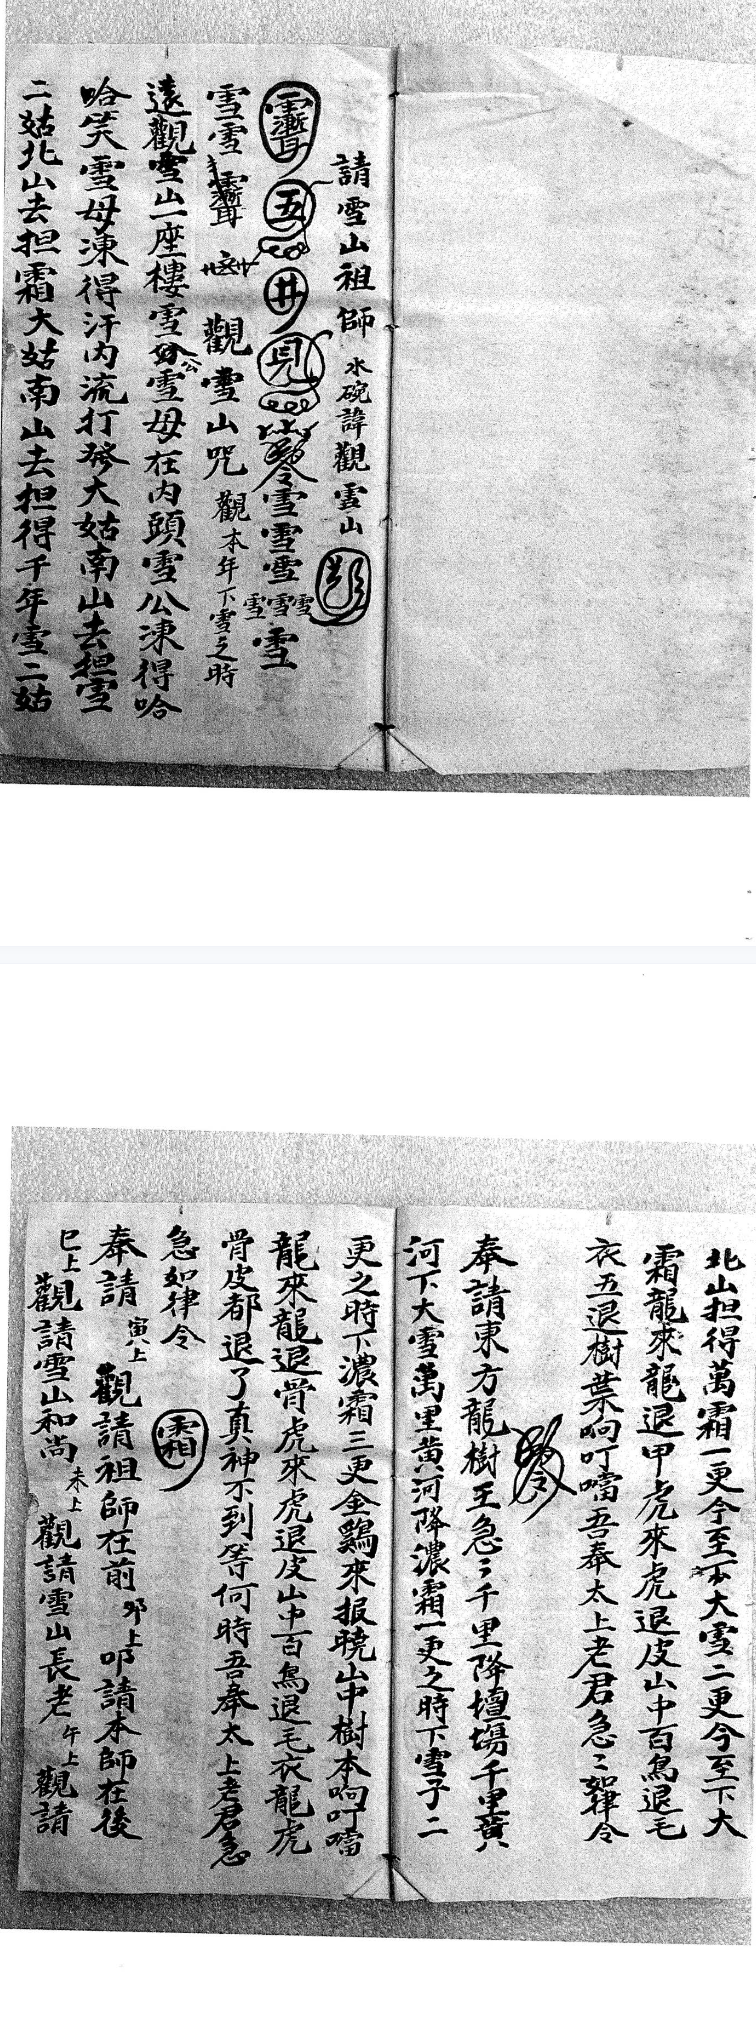 請雪山祖師 水碗諱觀雪山
五 井 見 雪雪雪 雪雪雪 雪
雪雪 觀雪山咒 觀本年下雪之時
遠觀雪山一座樓雪公雪母在內頭雪公凍得哈
哈笑雪母凍得汗內流打發大姑南山去担雪
二姑北山去担霜大姑南山去担得千年雪二姑
北山担得萬霜一更今至下大雪二更今至下大
霜龍來龍退甲虎來虎退皮山中百鳥退毛
衣五退樹葉响叮噹吾奉太上老君急〻如律令
奉請東方龍樹王急〻千里降壇場千里黃
河下大雪萬里黄河降濃霜一更之時下雪子二
更之時下濃霜三更金鷄來报曉山中樹本响叮噹
龍來龍退骨虎來虎退皮山中百鳥退毛衣龍虎
骨皮都退了真神不到等何時吾奉太上老君急
急如律令 霜
奉請 寅上 觀請祖師在前 卯上 叩請本師在後
巳上 觀請雪山和尚 未上 觀請雪山長老 午上 觀請